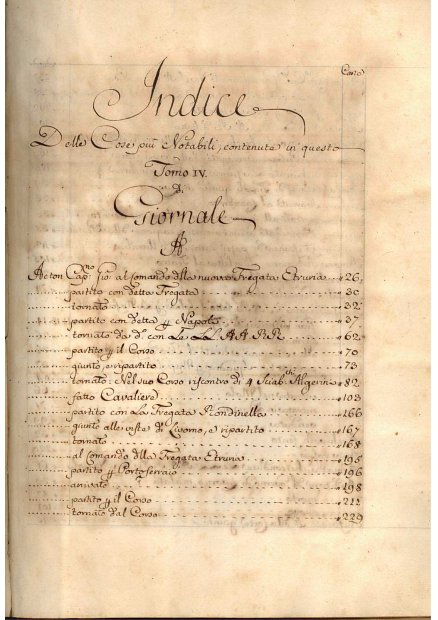 Carte
Indice
Delle Cose più Notabili, contenute in questo
Tomo IV.
di
Giornale
A
Acton Capno. Gio: al Comando dlla nuova Fregata Etruria 26
partito con detta Fregata 30
tornato 32
partito con detta p Napoli 37
tornato da do. con Le LL. AA. RR. 62
partito p il Corso 70
giunto, e ripartito 73
tornato. Nel suo Corso riscontro di 4 Sciabchi Algerini 82
fatto Cavaliere 103
partito con La Fregata Rondinella 166
giunto alle viste di Livorno, e ripartito 167
tornato 168
al Comando dlla Fregata Etruria 195
partito p Portoferraio 196
arrivato 198
partito p il Corso 212
tornato dal Corso 229